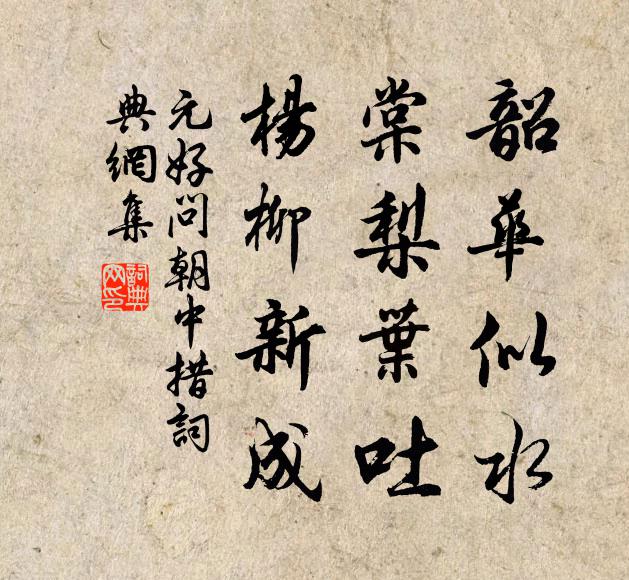 韶華似水
棠梨葉吐
楊柳新成
元好問朝中措詞
典網集
詞典
网印